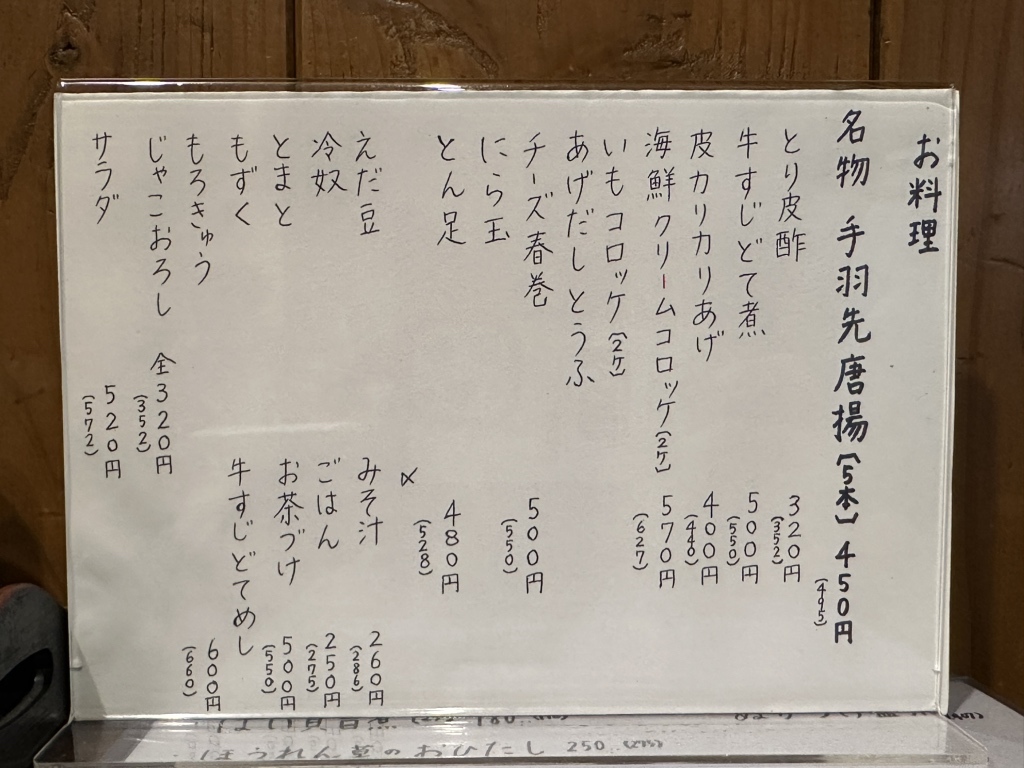 お料理
名物 手羽先唐揚(5本) 450円
(495)
とり皮酢 320円
(352)
牛すじどて煮 500円
(550)
皮カリカリあげ 400円
(440)
海鮮クリームコロッケ(2ケ) 570円
(627)
いもコロッケ(2ケ)
あげだしとうふ
チーズ春巻 500円
(550)
にら玉
とん足 480円
(528)
えだ豆
冷奴
とまと
もずく
もろきゅう
じゃこおろし 全320円
(352)
サラダ 520円
(572)
〆
みそ汁 260円
(286)
ごはん 250円
(275)
お茶づけ 500円
(550)
牛すじどてめし
600円
(660)
ほうれん草のおひたし 250 (275)